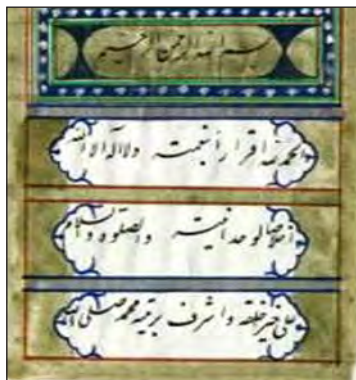 بسم الله الرحمن الرحيم
الحمدلله اقرارا بنعمته ولا اله الا الله
اخلاصا لوحدانيته والصلوة والسلام
على خير خلقه واشرف بريته محمد صلى الله